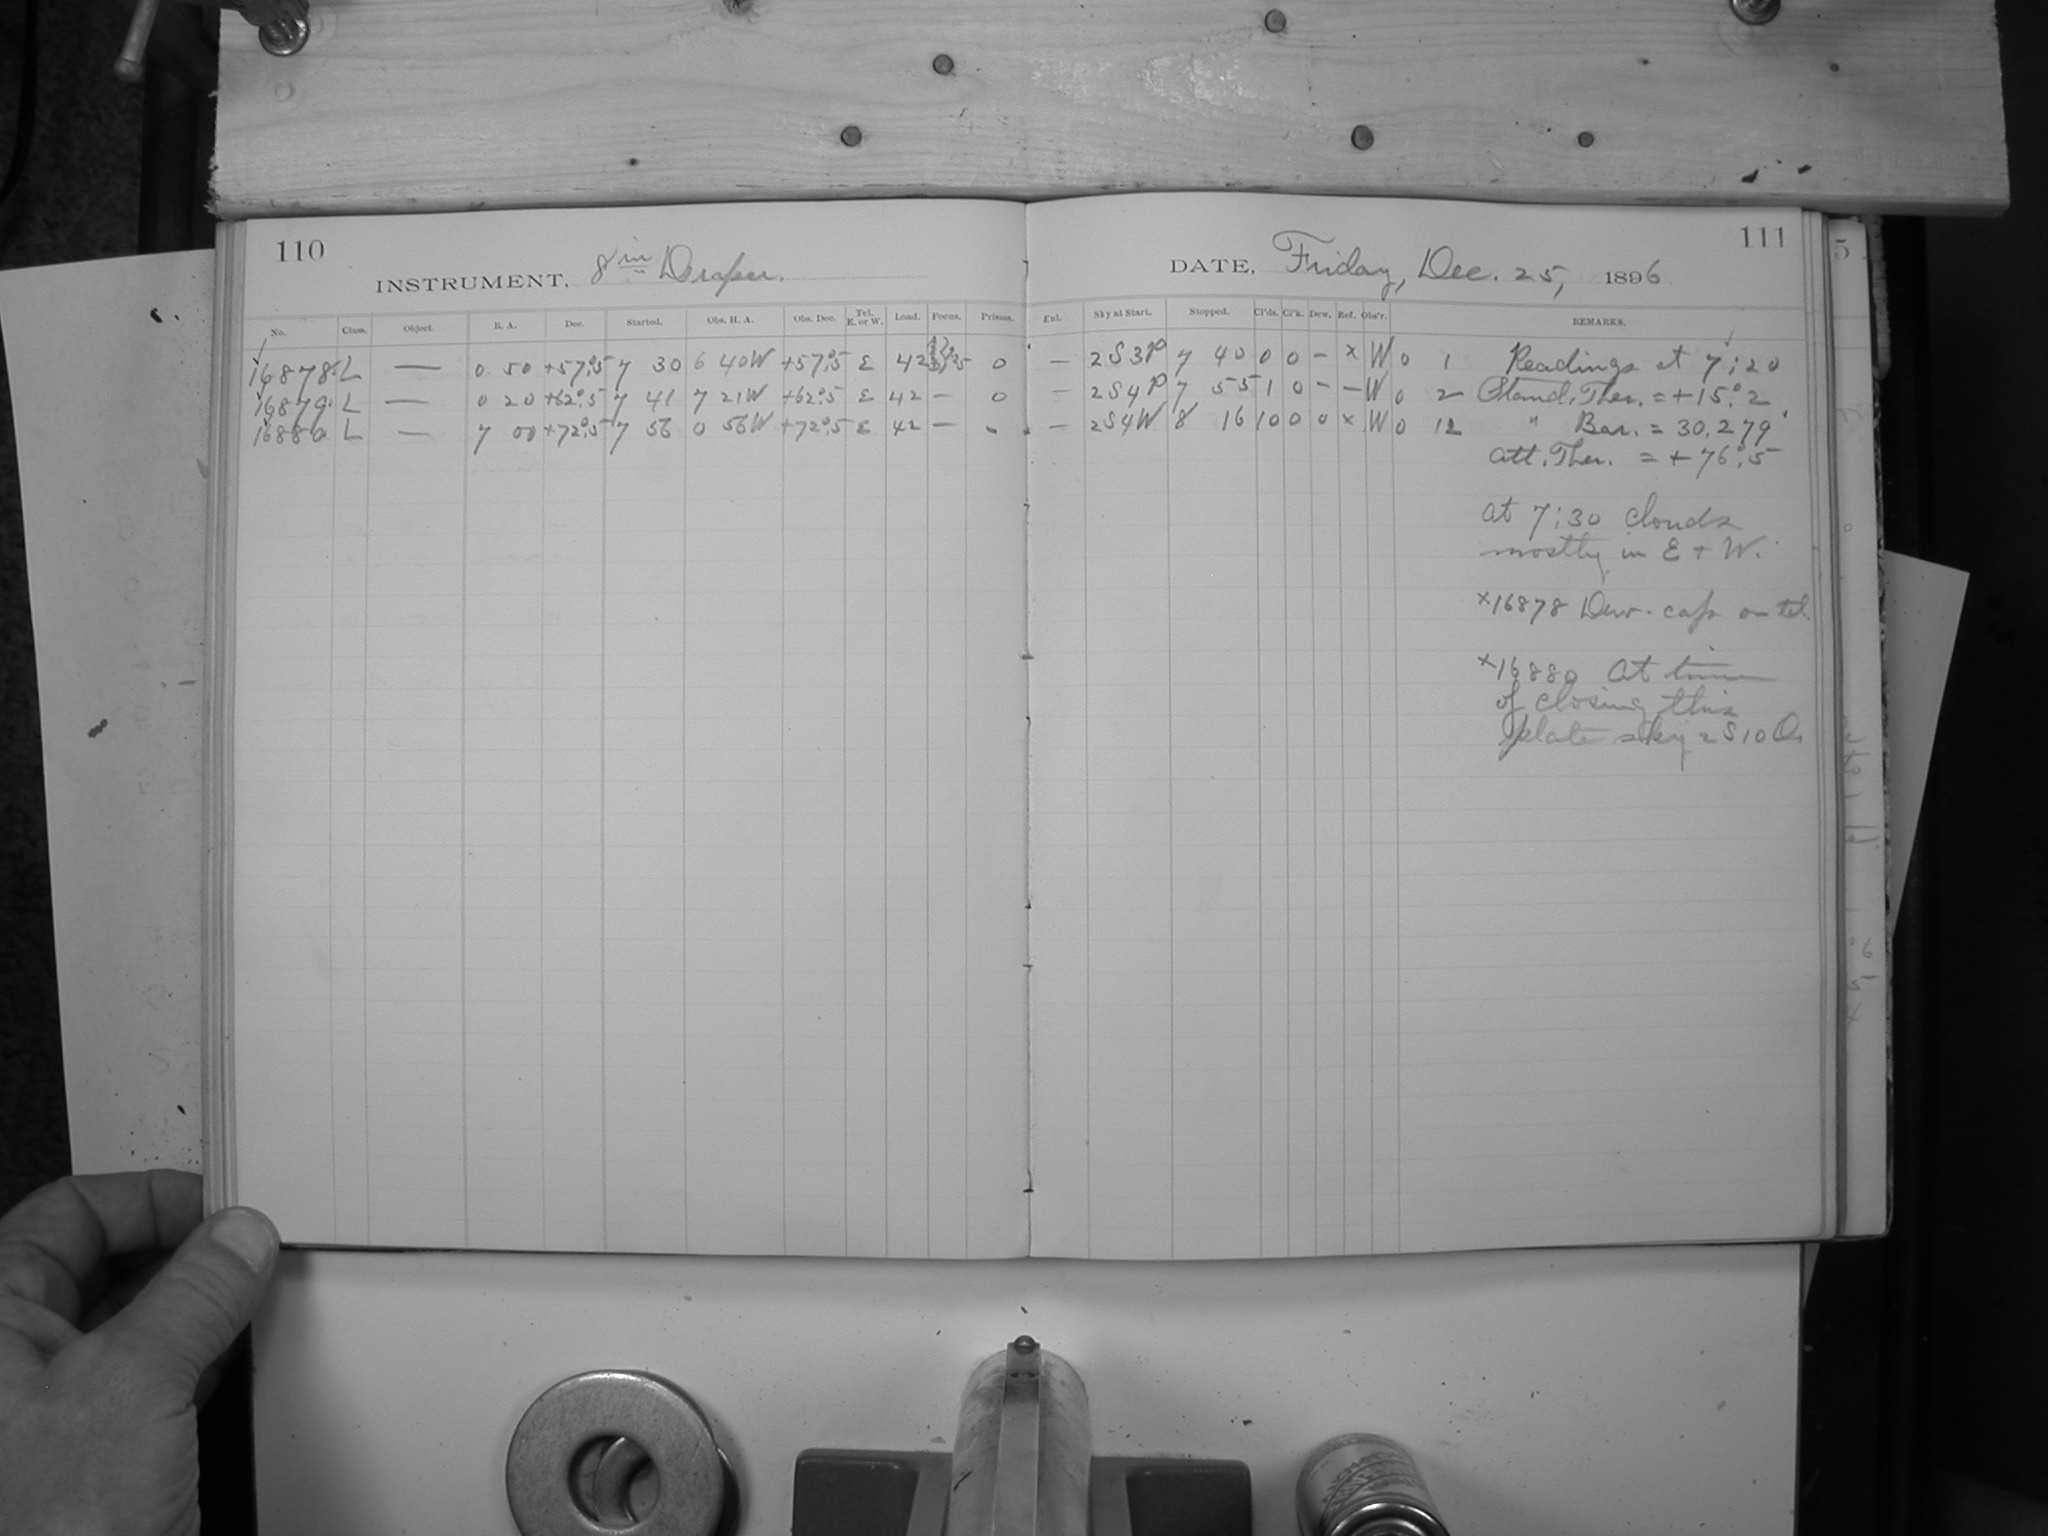 110
INSTRUMENT, 8 in Draper.
No. Class. Object. R. A. Dec. Started. Obs. H. A. Obs. Dec. Tel. E. or W. Load. Focus. Prisms.
16878 L — 0 50 +57°.5 7 30 6 40W +57°.5 E 42 0
16879 L — 0 20 +62°.5 7 41 7 21W +62°.5 E 42 — 0
16880 L — 7 00 +72°.5 7 56 0 56W +72°.5 E 42 — -
111
DATE, Friday, Dec. 25, 1896
Exl. Sky at Start. Stopped. Cl'ds. Cl'k. Dew. Ref. Obs'r. REMARKS.
— 2S3P 7 40 0 0 — x W 0 1
— 2S4P 7 55 1 0 — — W 0 2
— 2S4W 8 16 10 0 0 x W 0 12
Readings at 7;20
Stand. Ther. = +15°.2
" Bar. = 30.279
Att. Ther. = +76°.5
At 7;30 clouds
mostly in E + W.
x16878 Dew-cap on tel.
x16880 At time
of closing this
plate sky 2S10O.